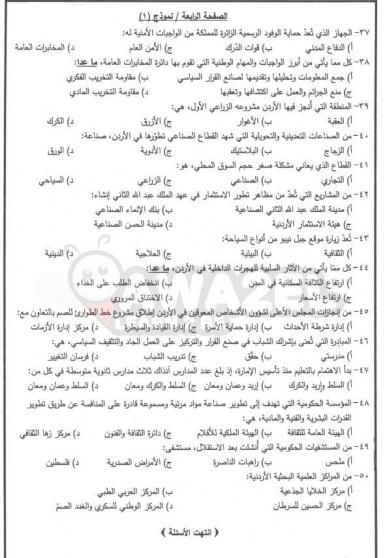 الصفحة الرابعة / نموذج (١)
٣٧- الجهاز الذي تُعدّ حماية الوفود الرسمية الزائرة للمملكة من الواجبات الأمنية له:
أ) الدفاع المدني ب) قوات الدّرك ج) الأمن العام د) المخابرات العامة
٣٨- كل ممّا يأتي من أبرز الواجبات والمهام الوطنية التي تقوم بها دائرة المخابرات العامة، ما عدا:
أ) جمع المعلومات وتحليلها وتقديمها لصانع القرار السياسي ب) مقاومة التخريب الفكري
ج) منع الجرائم والعمل على اكتشافها وتعقبها د) مقاومة التخريب المادي
٣٩- المنطقة التي أنجز فيها الأردن مشروعه الزراعي الأول، هي:
أ) العقبة ب) الأغوار ج) الأزرق د) الكرك
٤٠- من الصناعات التعدينية والتحويلية التي شهد القطاع الصناعي تطوّرها في الأردن، صناعة:
أ) الزجاج ب) البلاستيك ج) الأدوية د) الورق
٤١- القطاع الذي يعاني مشكلة صغر حجم السوق المحلي، هو:
أ) التجاري ب) الصناعي ج) الزراعي د) السياحي
٤٢- من المشاريع التي تُعدّ من مظاهر تطور الاستثمار في عهد الملك عبد الله الثاني إنشاء:
أ) مدينة الملك عبد الله الثاني الصناعية ب) بنك الإنماء الصناعي
ج) هيئة الاستثمار الأردنية د) مدينة الحسن الصناعية
٤٣- تُعدّ زيارة موقع جبل نيبو من أنواع السياحة:
أ) الثقافية ب) البيئية ج) العلاجية د) الدينية
٤٤- كل ممّا يأتي من الآثار السلبية للهجرات الداخلية في الأردن، ما عدا:
أ) ارتفاع الكثافة السكانية في المدن ب) انخفاض الطلب على الغذاء
ج) ارتفاع الأسعار د) الاختناق المروري
٤٥- من إنجازات المجلس الأعلى لشؤون الأشخاص المعوقين في الأردن إطلاق مشروع خط الطوارئ للصم بالتعاون مع:
أ) إدارة شرطة الأحداث ب) إدارة حماية الأسرة ج) إدارة القيادة والسيطرة د) مركز إدارة الأزمات
٤٦- المبادرة التي تُعنى بإشراك الشباب في صنع القرار والتركيز على العمل الجاد والتثقيف السياسي، هي:
أ) مدرستي ب) حقّق ج) تدريب الشباب د) فرسان التغيير
٤٧- بدأ الاهتمام بالتعليم منذ تأسيس الإمارة، إذ بلغ عدد المدارس آنذاك ثلاث مدارس ثانوية متوسطة في كل من:
أ) السلط وإربد والكرك ب) إربد وعمان ومعان ج) السلط والكرك ومعان د) السلط وعمان ومعان
٤٨- المؤسسة الحكومية التي تهدف إلى تطوير صناعة مواد مرئية ومسموعة قادرة على المنافسة عن طريق تطوير
القدرات البشرية والفنية والمادية، هي:
أ) الهيئة العامة للثقافة ب) الهيئة الملكية للأفلام ج) دائرة الثقافة والفنون د) مركز زها الثقافي
٤٩- من المستشفيات الحكومية التي أُنشئت بعد الاستقلال، مستشفى:
أ) ملحس ب) راهبات الناصرة ج) الأمراض الصدرية د) فلسطين
٥٠- من المراكز العلمية البحثية الأردنية:
أ) مركز الخلايا الجذعية ب) المركز العربي الطبي
ج) مركز الحسين للسرطان د) المركز الوطني للسكري والغدد الصمّ
﴿ انتهت الأسئلة ﴾